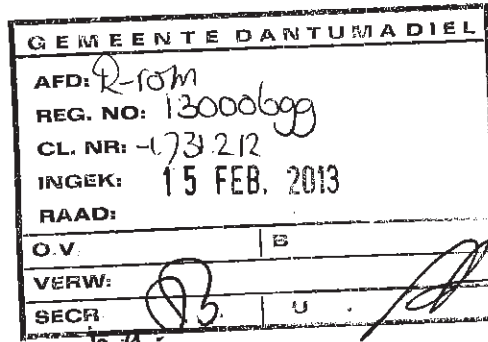 GEMEENTE DANTUMADIEL
AFD: R-rom
REG. NO: 13000699
CL. NR: -1.731.212
INGEK: 15 FEB. 2013
RAAD:
O.V. B
VERW:
SECR U.